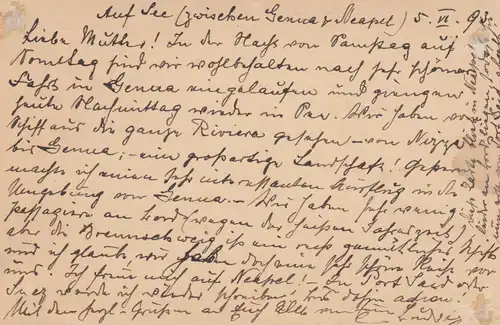 Auf See (zwischen Genua & Neapel) 5. VI. 93.
Liebe Mutter! In der Nacht von Samstag auf
Sonntag sind wir wohlbehalten nach sehr schöner
Fahrt in Genua eingelaufen und giengen
heute Nachmittag wieder in See. Wir haben vom
Schiff aus die ganze Riviera gesehen – von Nizza
bis Genua, – eine großartige Landschaft! Gestern
machte ich einen sehr interessanten Ausflug in die
Umgebung von Genua. – Wir haben sehr wenig
Passagiere an Bord (wegen der heißen Jahreszeit)
aber die Braunschweig ist ein recht gemütliches Schiff
und ich glaube, wir haben doch eine sehr schöne Reise vor
uns. Ich freue mich auf Neapel! In Port Said oder
Suez werde ich wieder schreiben, bis dahin adieu.
Mit den herzl. Grüßen an Euch Alle Ludwig